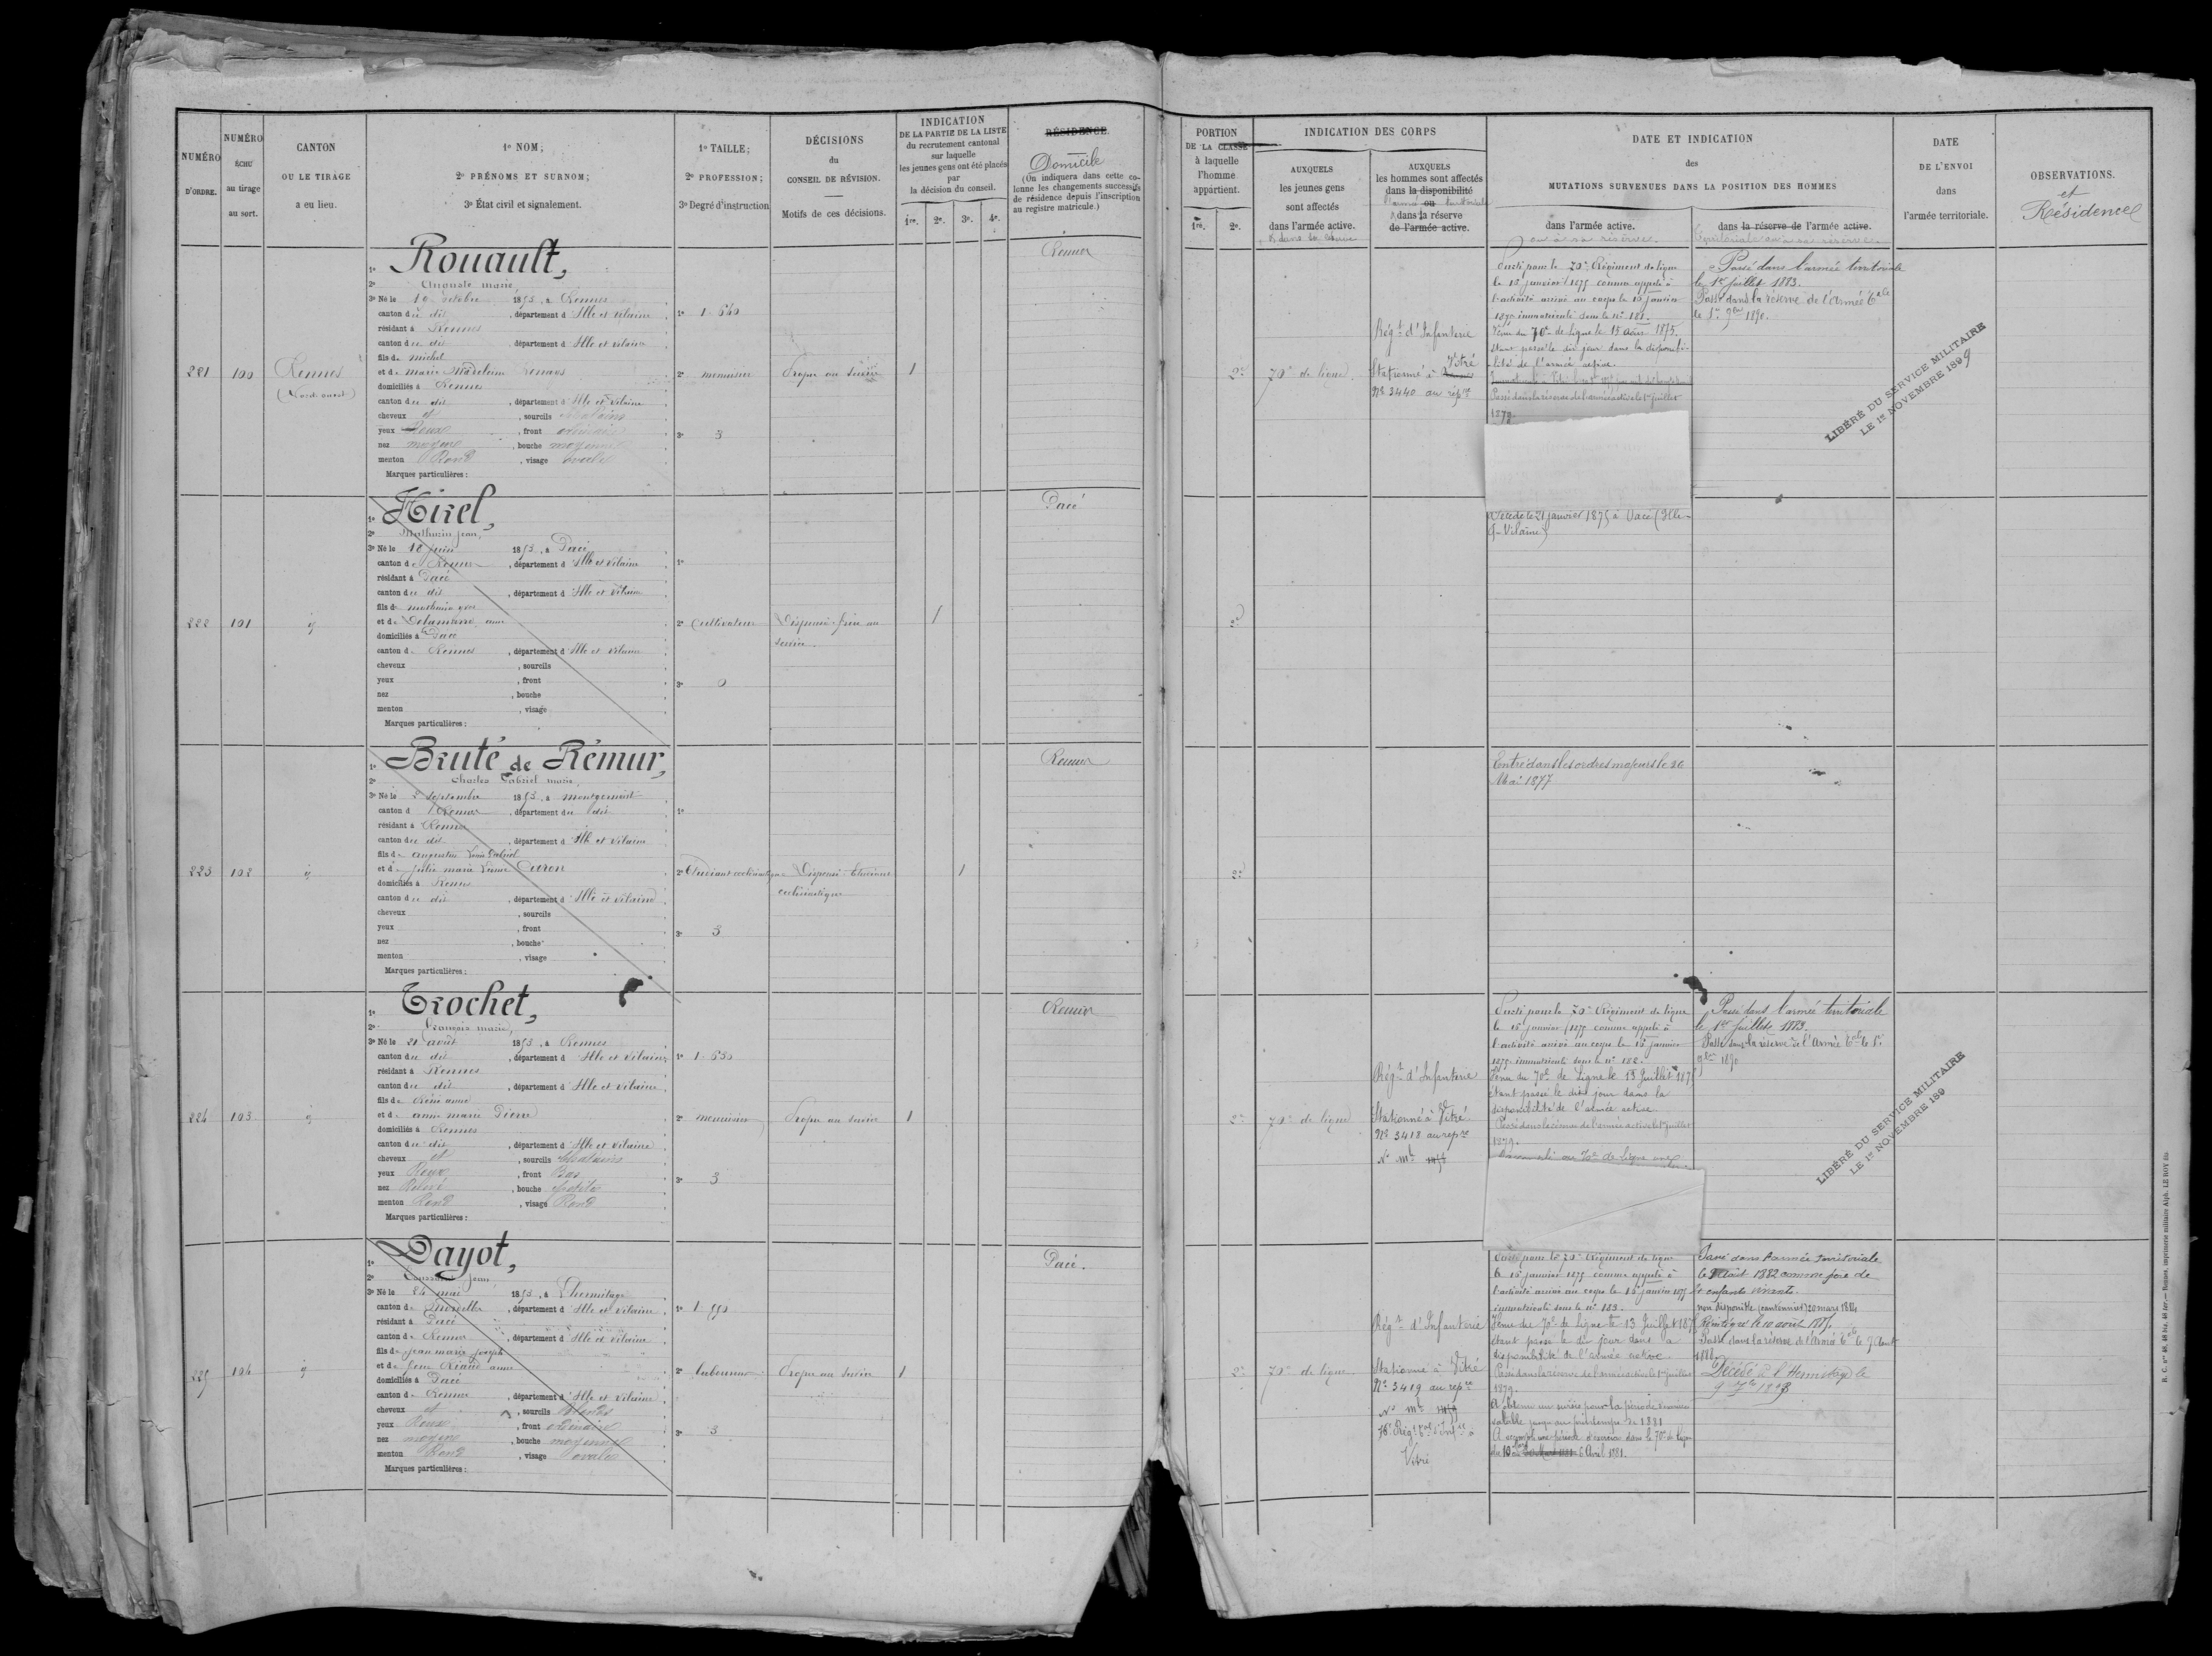 NUMÉRO
D'ORDRE.
NUMÉRO
ÉCHU
au tirage
au sort.
CANTON
OU LE TIRAGE
a eu lieu.
1º NOM;
2º PRÉNOMS ET SURNOM;
3º État civil et signalement.
1º TAILLE;
2º PROFESSION;
3º Degré d'instruction
DÉCISIONS
du
CONSEIL DE RÉVISION.
Motifs de ces décisions.
INDICATION
DE LA PARTIE DE LA LISTE
du recrutement cantonal
sur laquelle
les jeunes gens ont été placés
par
la décision du conseil.
1re. 2e. 3e. 4e.
RÉSIDENCE
Domicile
(On indiquera dans cette co-
lonne les changements successifs
de résidence depuis l'inscription
au registre matricule.)
PORTION
DE LA CLASSE
à laquelle
l'homme
appartient.
1re. 2e.
INDICATION DES CORPS
AUXQUELS
les jeunes gens
sont affectés
dans l'armée active.
AUXQUELS
les hommes sont affectés
dans la disponibilité
ou
dans la réserve
de l'armée active.
DATE ET INDICATION
des
MUTATIONS SURVENUES DANS LA POSITION DES HOMMES
dans l'armée active.
ou à sa réserve.
dans la réserve de l'armée active.
DATE
DE L'ENVOI
dans
l'armée territoriale.
OBSERVATIONS.
et
Résidence
221
100
Rennes
(Nord-ouest)
1º Rouault,
2º Auguste marie,
3º Né le 10 octobre 1853, à Rennes
canton du dit, département d Ille et vilaine
résidant à Rennes
canton du dit, département d Ille et vilaine
fils de michel
et de marie Madeleine
domiciliés à Rennes
canton du dit, département d Ille et vilaine
cheveux et, sourcils chatains
yeux Roux, front ordinaire
nez moyen, bouche moyenne
menton Rond, visage ovale
Marques particulières :
1º 1.640
2º menuisier
3º 3
Propre au service
1
Rennes
2e
70e de ligne
Régt d'Infanterie
Stationné à Vitré
No 3440 au répre
le 15 janvier 1875 comme appelé à
l'activité arrivé au corps le 15 janvier
1875 immatriculé sous le no 181.
Venu du 70e de Ligne le 15 août 1875.
étant passé le dit jour dans la disponibi-
lité de l'armée active.
Passé dans la réserve de l'armée active le 1er juillet
1879.
Passé dans l'armée territoriale
le 1er juillet 1883.
Passé dans la réserve de l'Armée Tale
le 1er 9bre 1890.
LIBÉRÉ DU SERVICE MILITAIRE
LE 1er NOVEMBRE 1899
222
101
1º Hirel,
2º Mathurin jean,
3º Né le 18 juin 1853, à Pacé
canton de Rennes, département d Ille et vilaine
résidant à Pacé
canton du dit, département d Ille et vilaine
fils de mathurin
et de Delamarre anne
domiciliés à Pacé
canton de Rennes, département d Ille et vilaine
cheveux, sourcils
yeux, front
nez, bouche
menton, visage
Marques particulières :
1º
2º Cultivateur
3º 0
Dispensé frère au
service
1
Pacé
2e
Décédé le 21 janvier 1875 à Pacé (Ille-
&-Vilaine)
223
102
1º Bruté de Rémur,
2º Charles Gabriel marie
3º Né le 2 septembre 1853, à montgermont
canton d Rennes, département du dit
résidant à Rennes
canton du dit, département d Ille et vilaine
fils de augustin Louis Gabriel
et de julie marie
domiciliés à Rennes
canton du dit, département d Ille et vilaine
cheveux, sourcils
yeux, front
nez, bouche
menton, visage
Marques particulières :
1º
2º Etudiant ecclésiastique
3º 3
Dispensé Etudiant
ecclésiastique
1
Rennes
2e
Entré dans les ordres majeurs le 26
Mai 1877
224
103
1º Trochet,
2º François marie,
3º Né le 21 août 1853, à Rennes
canton du dit, département d Ille et vilaine
résidant à Rennes
canton du dit, département d Ille et vilaine
fils de
et de anne marie
domiciliés à Rennes
canton du dit, département d Ille et vilaine
cheveux et, sourcils chatains
yeux Roux, front Bas
nez Relevé, bouche petite
menton Rond, visage Rond
Marques particulières :
1º 1.630
2º menuisier
3º 3
Propre au service
1
Rennes
2e
70e de ligne
Régt d'Infanterie
Stationné à Vitré
No 3418 au repre
le 15 janvier 1875 comme appelé à
l'activité arrivé au corps le 15 janvier
1875 immatriculé sous le no 182.
Venu du 70e de Ligne le 13 Juillet 1875
étant passé le dit jour dans la
disponibilité de l'armée active
Passé dans la réserve de l'armée active le 1er juillet
1879.
Passé dans l'armée territoriale
le 1er juillet 1883.
Passé dans la réserve de l'Armée Tale le 1er
9bre 1890
LIBÉRÉ DU SERVICE MILITAIRE
LE 1er NOVEMBRE 189
225
104
1º Dayot,
2º Toussaint jean
3º Né le 24 mai 1853, à L'hermitage
canton de mordelles, département d Ille et vilaine
résidant à Pacé
canton de Rennes, département d Ille et vilaine
fils de jean marie joseph
et de
domiciliés à Pacé
canton de Rennes, département d Ille et vilaine
cheveux et, sourcils blonds
yeux Roux, front ordinaire
nez moyen, bouche moyenne
menton Rond, visage ovale
Marques particulières :
1º 1.550
2º laboureur
3º 3
Propre au service
1
Pacé.
2e
70e de ligne
Régt d'Infanterie
Stationné à Vitré
No 3419 au repre
Vitré
le 15 janvier 1875 comme appelé à
l'activité arrivé au corps le 15 janvier 1875
immatriculé sous le no 183.
Venu du 70e de Ligne le 13 Juillet 1875
étant passé le dit jour dans la
disponibilité de l'armée active
Passé dans la réserve de l'armée active le 1er juillet
1879.
A obtenu un sursis pour la période d'exercice
valable jusqu'au printemps de 1881
A accompli une période d'exercice dans le 70e de ligne
du 10 au 6 Avril 1881.
Passé dans l'armée territoriale
le Août 1882 comme père de
4 enfants vivants.
non disponible (cantonnier) 20 mars 1884
Réintégré le 10 août 1885
Passé dans la réserve de l'Armée Tale le 9 Août
1888
Décédé à l'Hermitage le
R. C. nos 48, 48 bis, 48 ter. — Rennes, imprimerie militaire Alph. LE ROY fils.